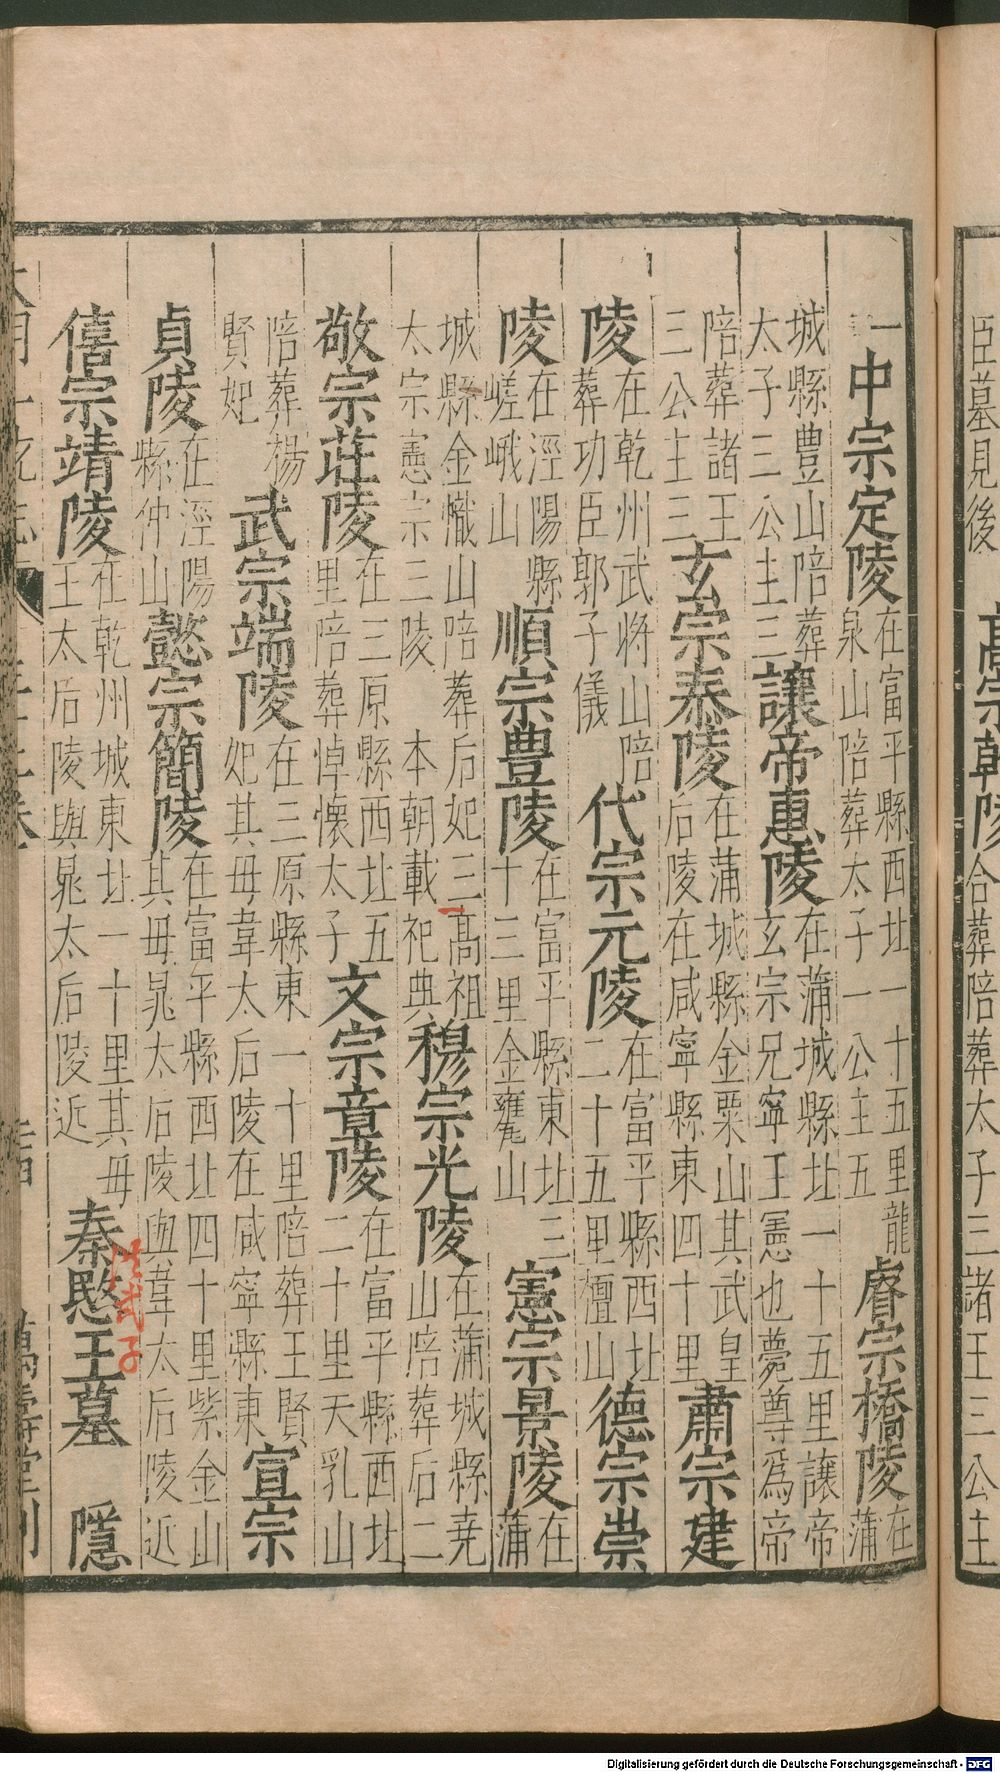 臣墓見後　高宗乾陵合葬陪葬太子三諸王三公主
一中宗定陵在富平縣西北一十五里龍泉山陪葬太子一公主五睿宗橋陵在蒲
城縣豊山陪葬太子三公主三讓帝惠陵在蒲城縣北一十五里讓帝玄宗兄寧王憲也薨尊爲帝
陪葬諸王三公主三玄宗泰陵在蒲城縣金粟山其武皇后陵在咸寧縣東四十里肅宗建
陵在乾州武將山陪葬功臣郭子儀　代宗元陵在富平縣西北二十五里檀山德宗崇
陵在涇陽縣嵯峨山順宗豊陵在富平縣東北三十三里金甕山憲宗景陵在蒲
城縣金幟山陪葬后妃三高祖太宗憲宗三陵　本朝載祀典穆宗光陵在蒲城縣堯山陪葬后二
敬宗莊陵在三原縣西北五里陪葬悼懷太子文宗章陵在富平縣西北二十里天乳山
陪葬楊賢妃　武宗端陵在三原縣東一十里陪葬王賢妃其母韋太后陵在咸寧縣東宣宗
貞陵在涇陽縣仲山懿宗簡陵在富平縣西北四十里紫金山其母晁太后陵與韋太后陵近
僖宗靖陵在乾州城東北一十里其母王太后陵與晁太后陵近　秦愍王墓　隱
洪武子
大明一統志　萬壽堂刊
Digitalisierung gefördert durch die Deutsche Forschungsgemeinschaft - DFG